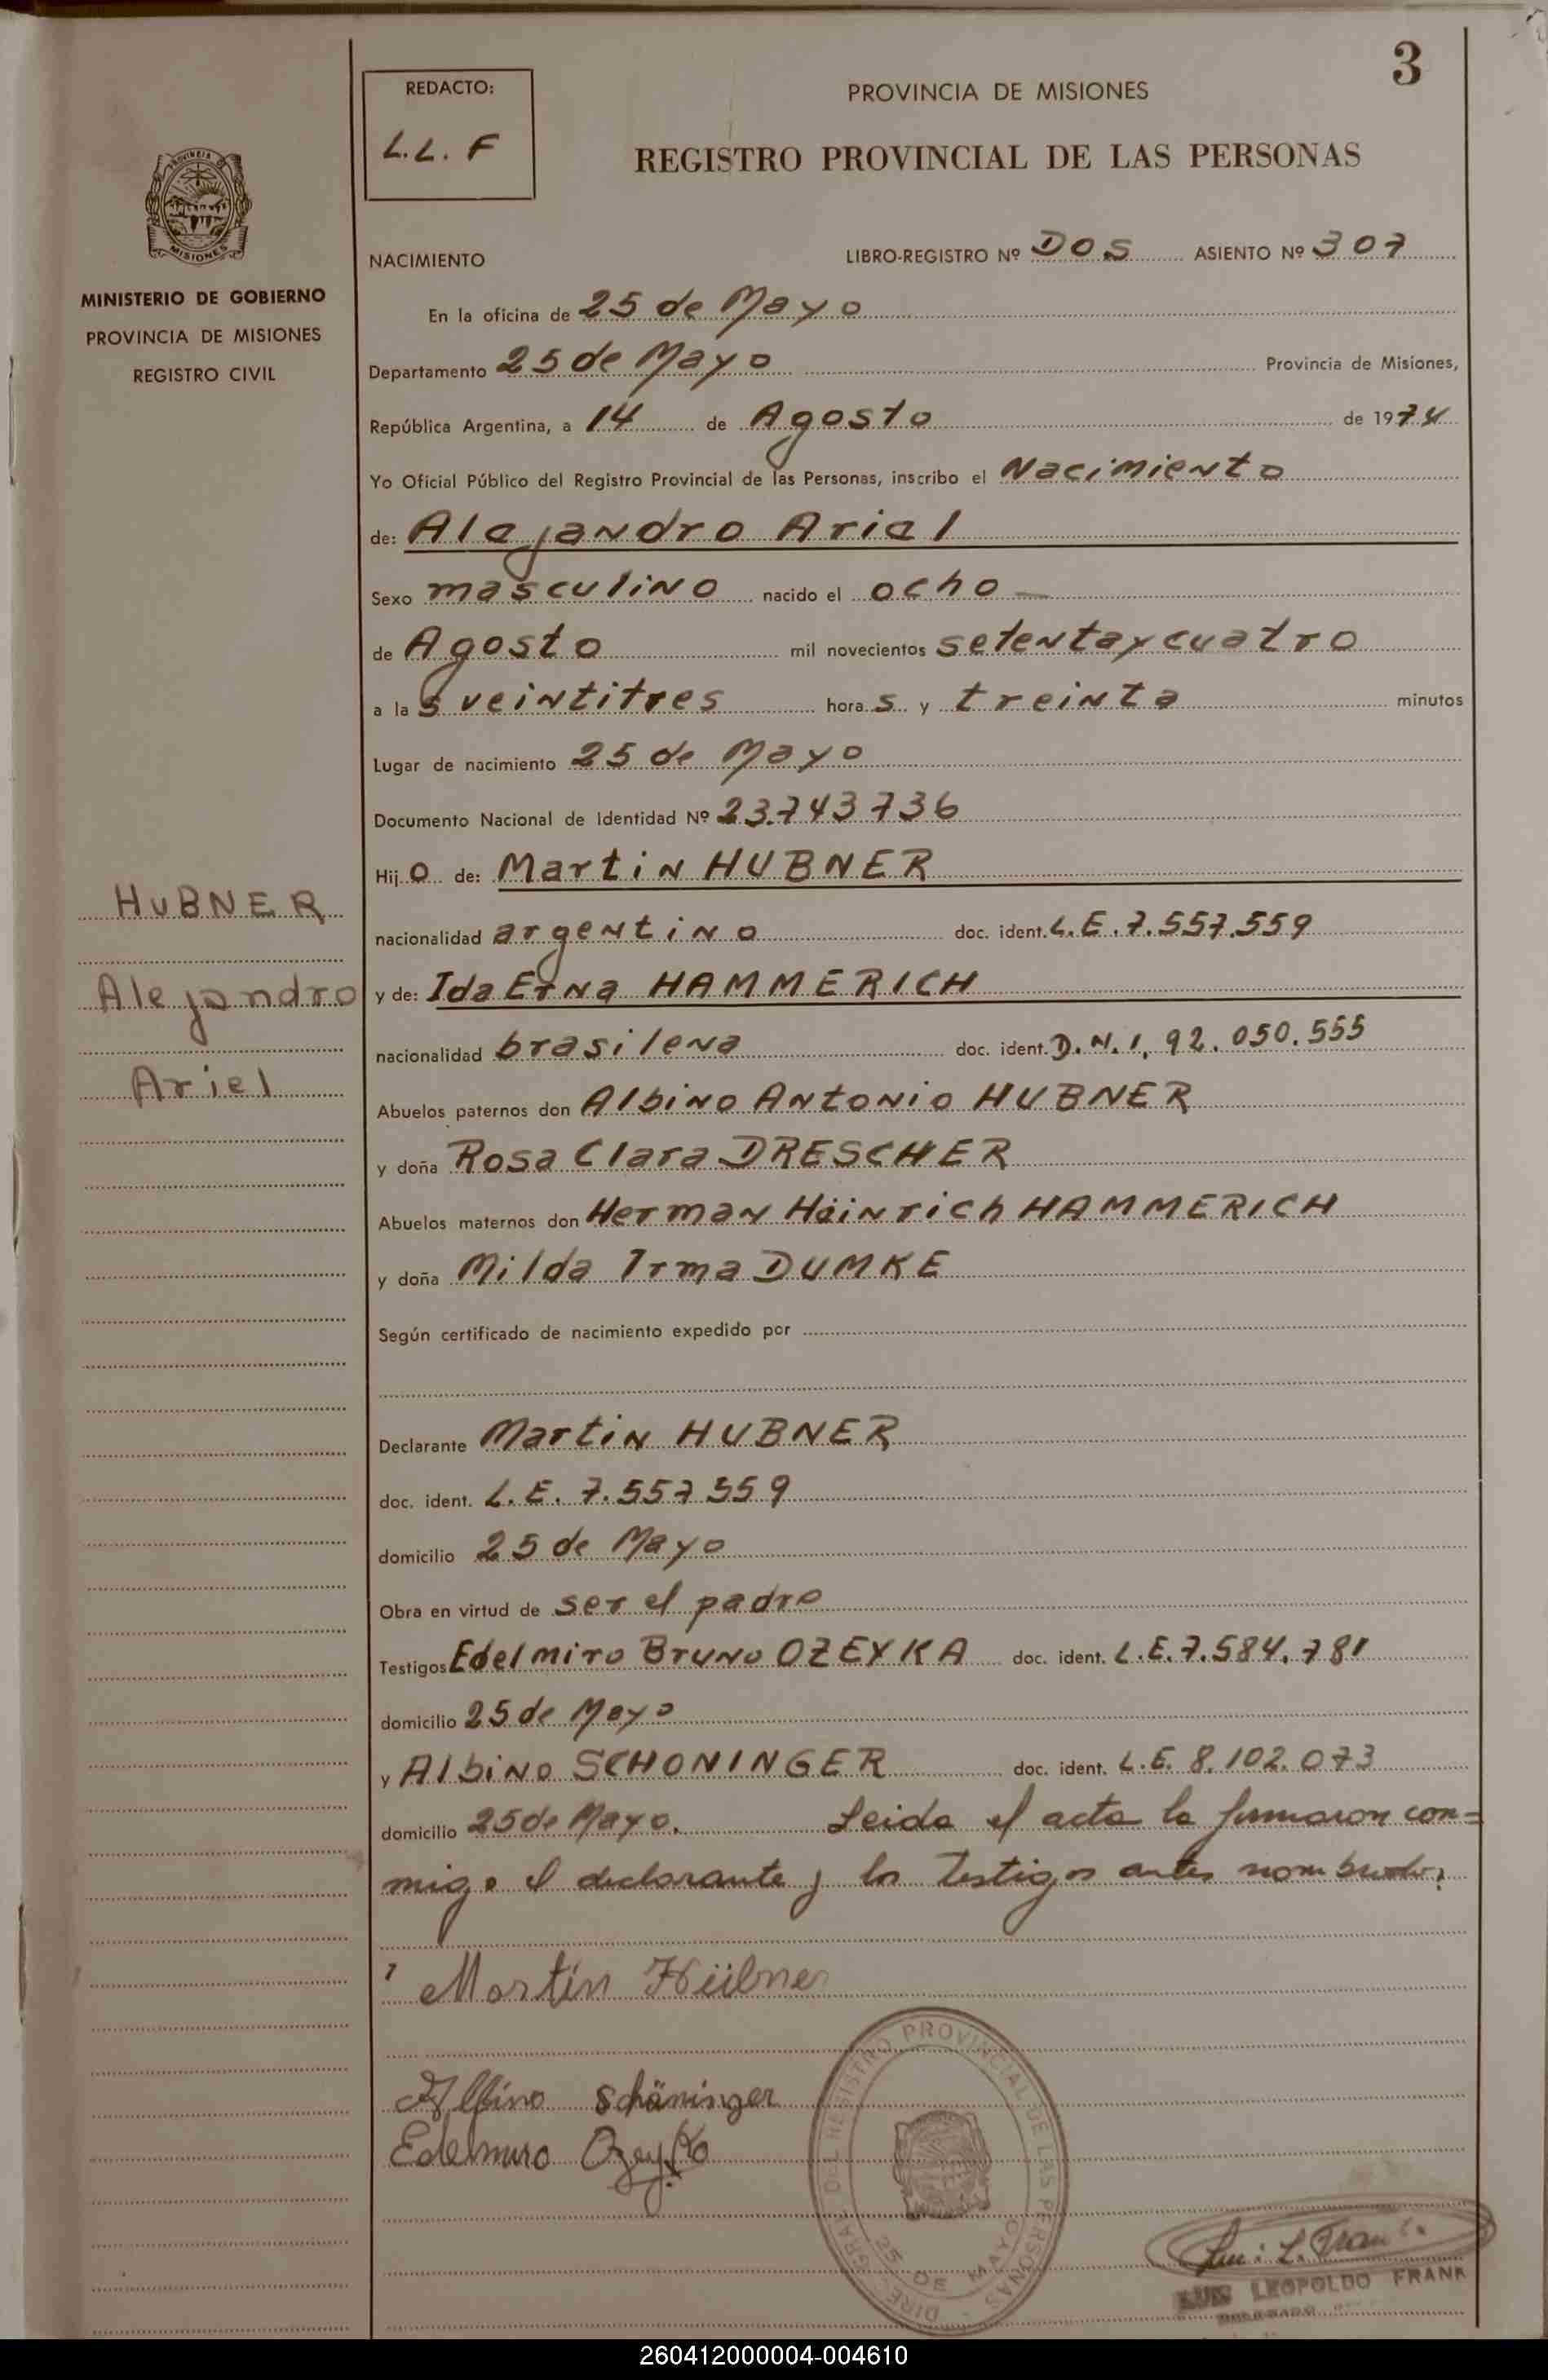 3
REDACTO:
L.L.F
PROVINCIA DE MISIONES
REGISTRO PROVINCIAL DE LAS PERSONAS
PROVINCIA DE
MISIONES
MINISTERIO DE GOBIERNO
PROVINCIA DE MISIONES
REGISTRO CIVIL
NACIMIENTO LIBRO-REGISTRO Nº DOS ASIENTO Nº 307
En la oficina de 25 de Mayo
Departamento 25 de Mayo Provincia de Misiones,
República Argentina, a 14 de Agosto de 1974
Yo Oficial Público del Registro Provincial de las Personas, inscribo el Nacimiento
de: Alejandro Ariel
Sexo masculino nacido el ocho
de Agosto mil novecientos setenta y cuatro
a las veintitres horas y treinta minutos
Lugar de nacimiento 25 de Mayo
Documento Nacional de Identidad Nº 23.743736
Hijo de: Martin HUBNER
nacionalidad argentino doc. ident. L.E. 7.557.559
y de: Ida Erna HAMMERICH
nacionalidad brasilena doc. ident. D.N.I. 92.050.555
Abuelos paternos don Albino Antonio HUBNER
y doña Rosa Clara DRESCHER
Abuelos maternos don Herman Heinrich HAMMERICH
y doña Milda Irma DUMKE
Según certificado de nacimiento expedido por
Declarante Martin HUBNER
doc. ident. L.E. 7.557 559
domicilio 25 de Mayo
Obra en virtud de ser el padre
Testigos Edelmiro Bruno OZEYKA doc. ident. L.E. 7.584.781
domicilio 25 de Mayo
y Albino SCHONINGER doc. ident. L.E. 8.102.073
domicilio 25 de Mayo. Leida el acta la firmaron con=
migo el declarante y los testigos antes nombrados.
HUBNER
Alejandro
Ariel
Martin Hübner
Albino Schöninger
Edelmiro Ozeyka
DIREC. GRAL. DEL REGISTRO PROVINCIAL DE LAS PERSONAS
25 DE MAYO
Luis L. Frank
LUIS LEOPOLDO FRANK
260412000004-004610